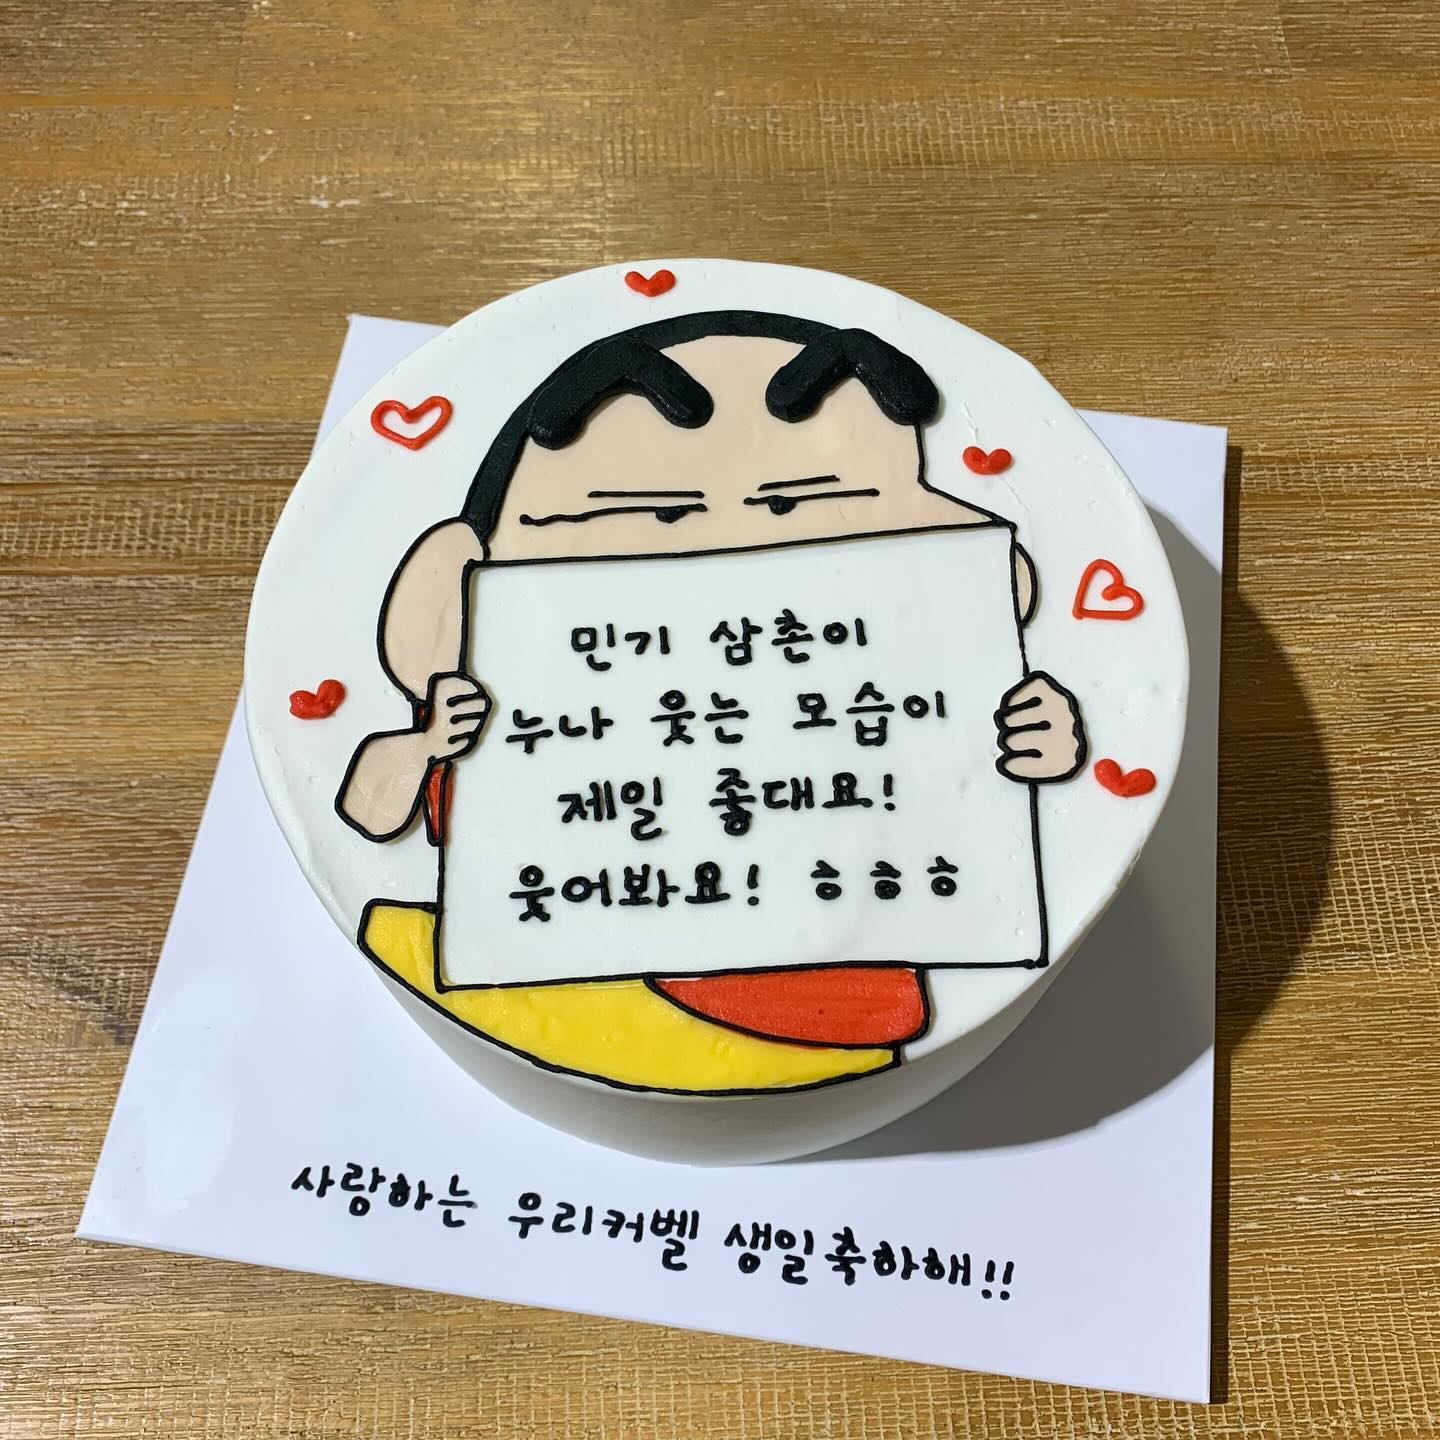 민기 삼촌이
누나 웃는 모습이
제일 좋대요!
웃어봐요! ㅎㅎㅎ
사랑하는 우리커벨 생일축하해!!